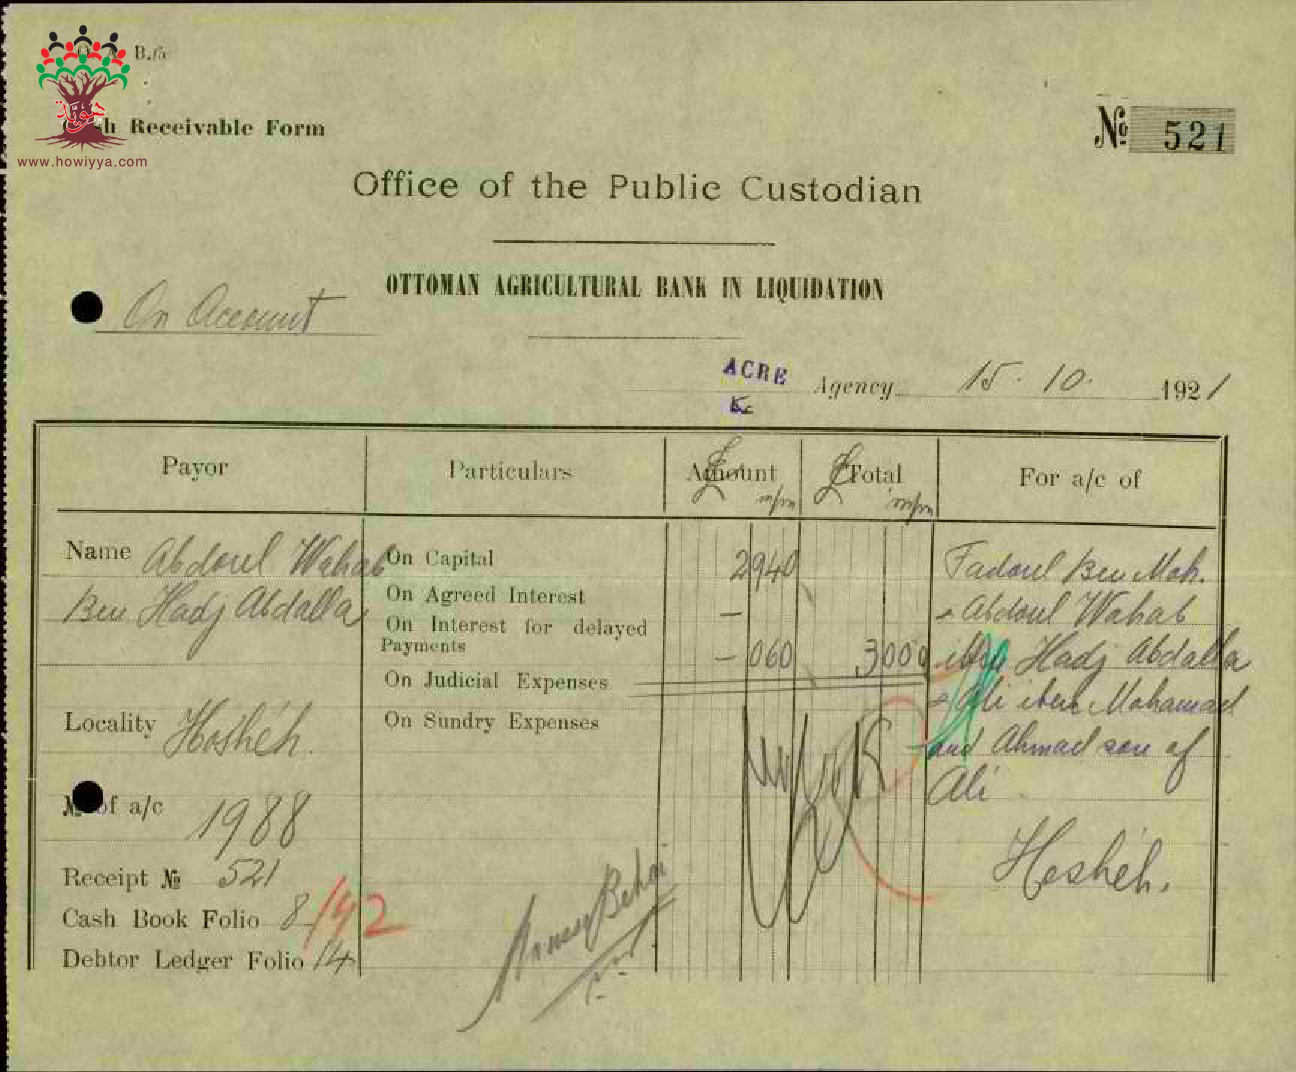 B./5
هوية
www.howiyya.com
Cash Receivable Form
№ 521
Office of the Public Custodian
OTTOMAN AGRICULTURAL BANK IN LIQUIDATION
On Account
ACRE Agency 15. 10. 1921
Payor Particulars Amount Total For a/c of
£ m/m £ m/m
Name Abdoul Wahab
Ben Hadj Abdalla
Locality Hosheh.
№ of a/c 1988
Receipt № 521
Cash Book Folio 8/142
Debtor Ledger Folio 14
On Capital 2940
On Agreed Interest —
On Interest for delayed
Payments — 060 3000
On Judicial Expenses
On Sundry Expenses
Fadoul Ben Moh.
Abdoul Wahab
iben Hadj Abdalla
Ali iben Mohamad
and Ahmad son of
Ali
Hosheh.